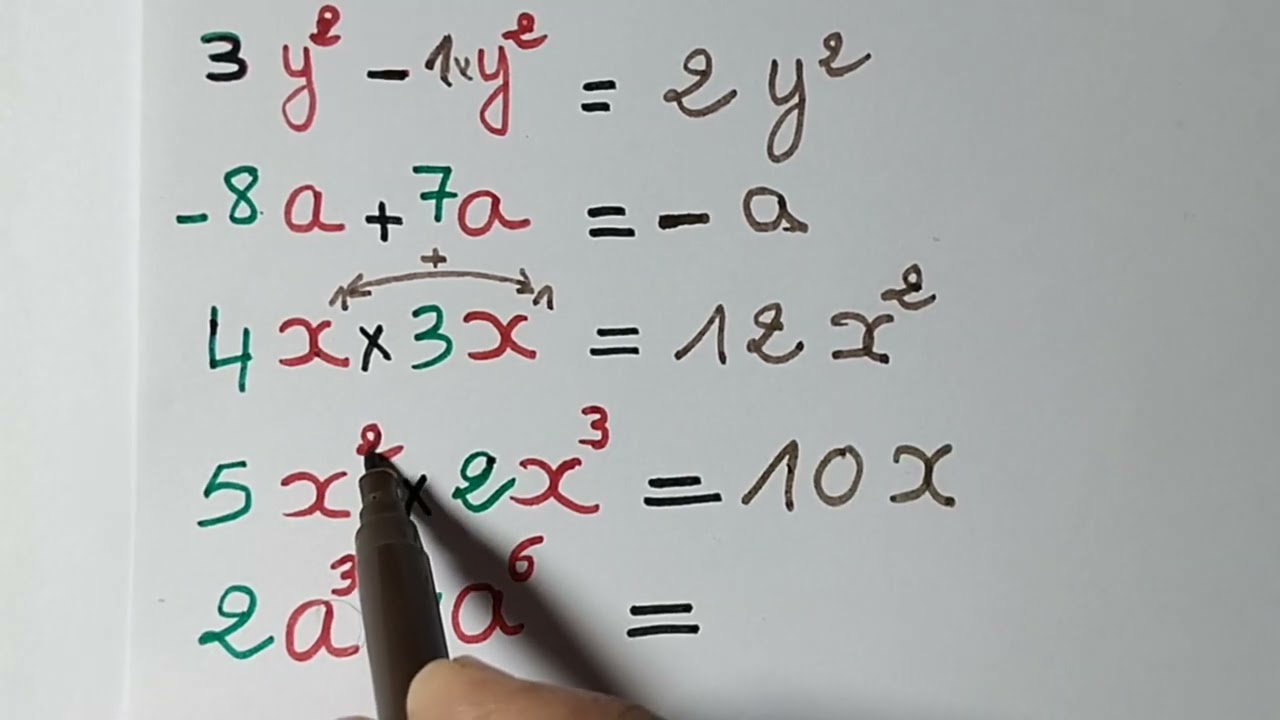 3 y² - 1×y² = 2 y²
-8 a + 7a = - a
+
1 1
4 x × 3 x = 12 x²
5 x² × 2 x³ = 10 x
2 a³ a⁶ =